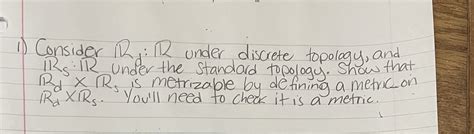 1) Consider ℝd: ℝ under discrete topology, and
ℝs: ℝ under the standard topology. Show that
ℝd × ℝs is metrizable by defining a metric on
ℝd × ℝs. You'll need to check it is a metric.